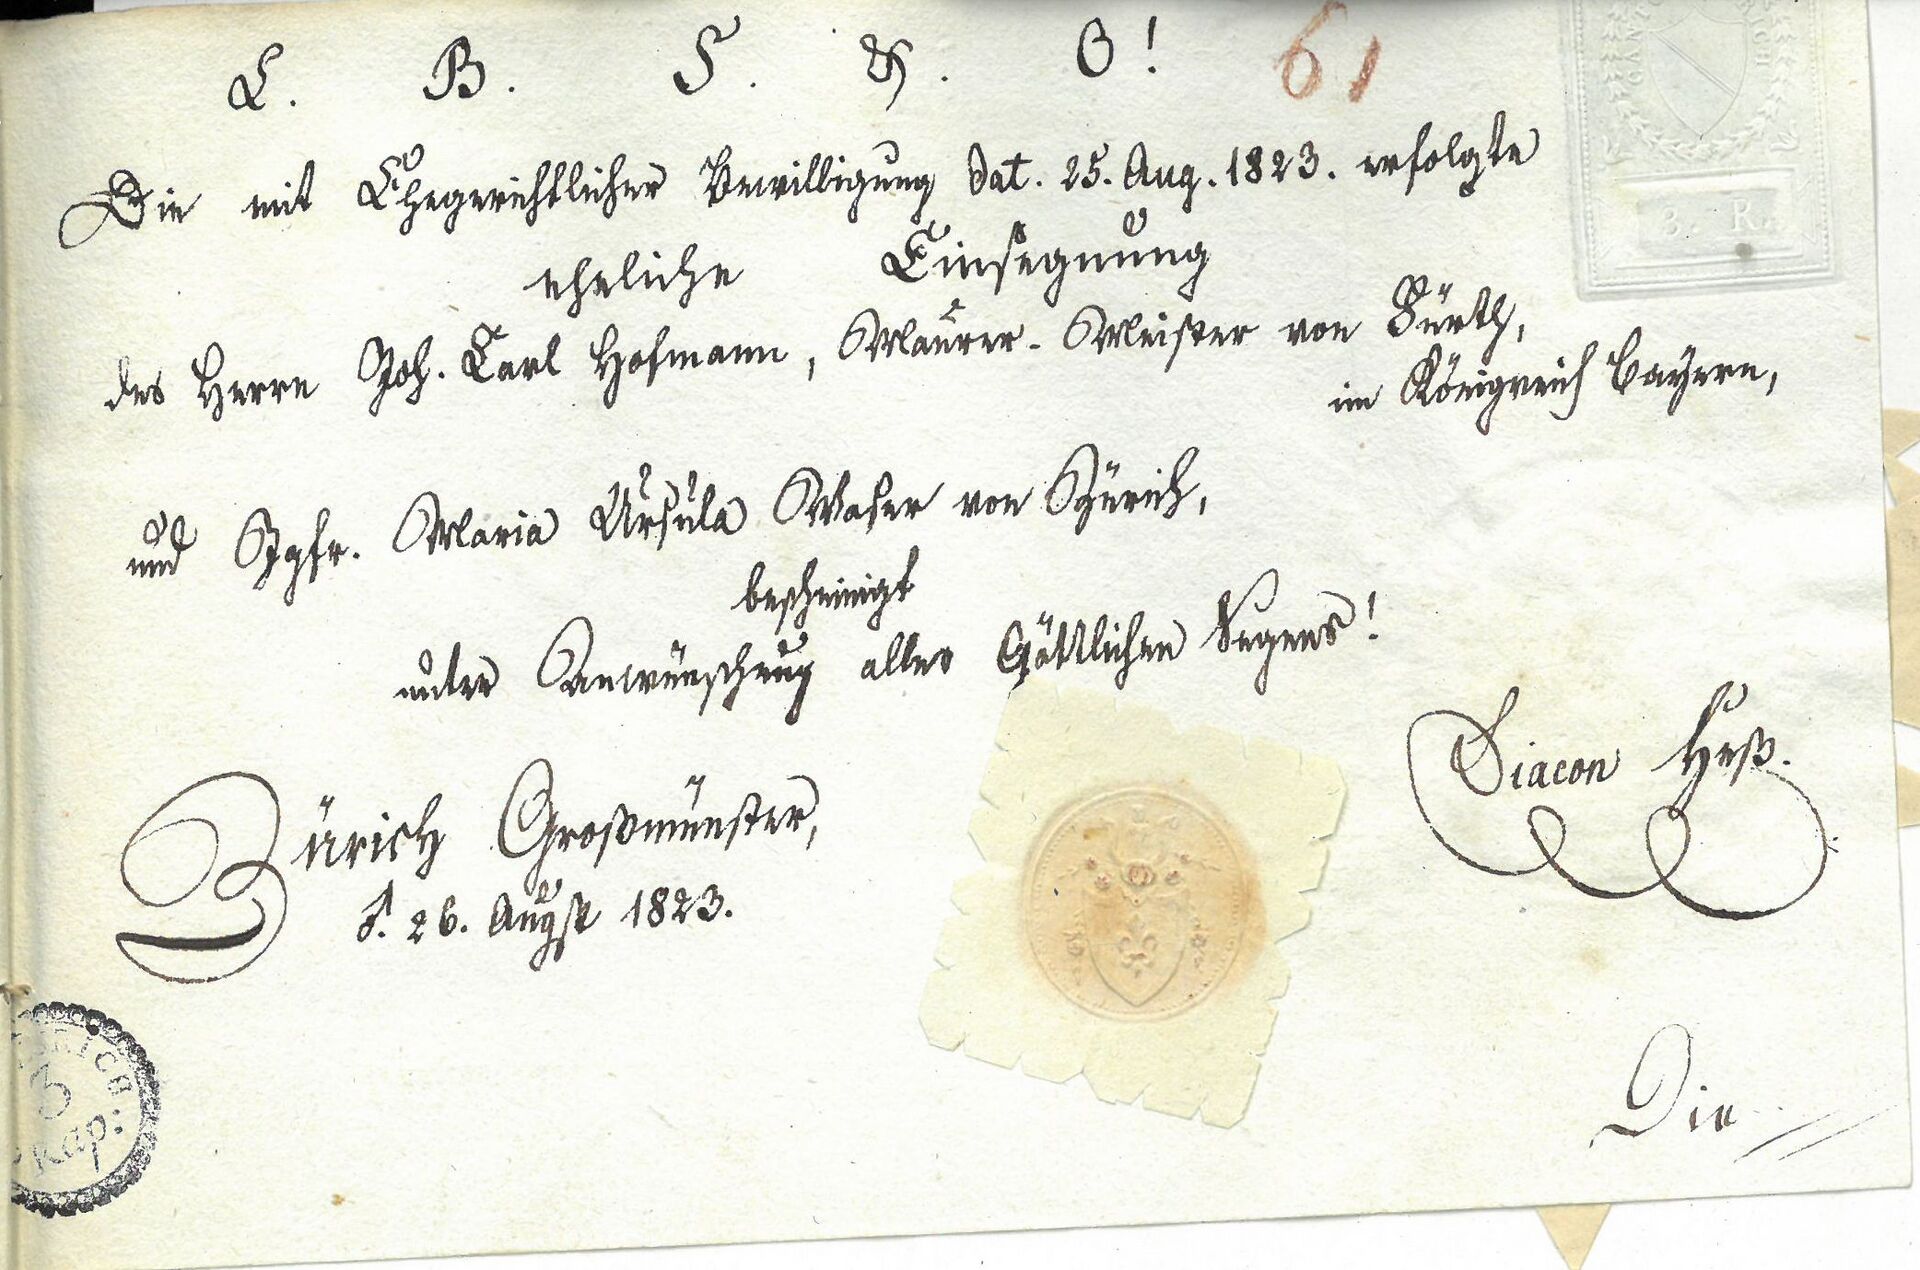 L. B. S. & O! 61
Die mit Ehegerichtlicher Bewilligung dat. 25. Aug. 1823. erfolgte
eheliche Einsegnung
des Herrn Joh. Carl Hofmann, Maurer-Meister von Fürth,
im Königreich Bayern,
und Jgfr. Maria Ursula Waser von Zürich,
bescheinigt
unter Anwünschung alles Göttlichen Segens!
Diacon Heß.
Zürich Großmünster,
d. 26. Augst 1823.
Die
3. R.
3
Rap: